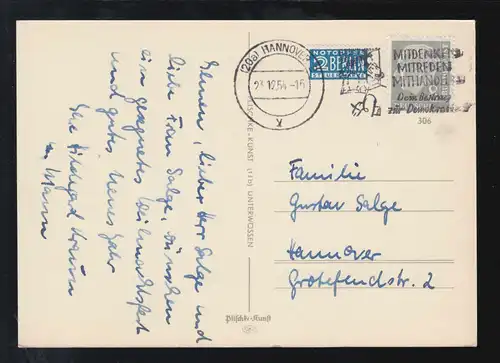 Ihnen, lieber Herr Salge und
liebe Frau Salge, wünschen
ein gesegnetes Weihnachtsfest
und gutes neues Jahr
Ihre Hildegard
u. Mann
(20a) HANNOVER
23.12.54.-15
x
NOTOPFER
2 BERLIN
STEUERMARKE
MITDENKEN
MITREDEN
MITHANDELN
Dein Beitrag
zur Demokratie
306
KUNST (13b) UNTERWÖSSEN
Plitschke-Kunst
Familie
Gustav Salge
Hannover
Grotefendstr. 2